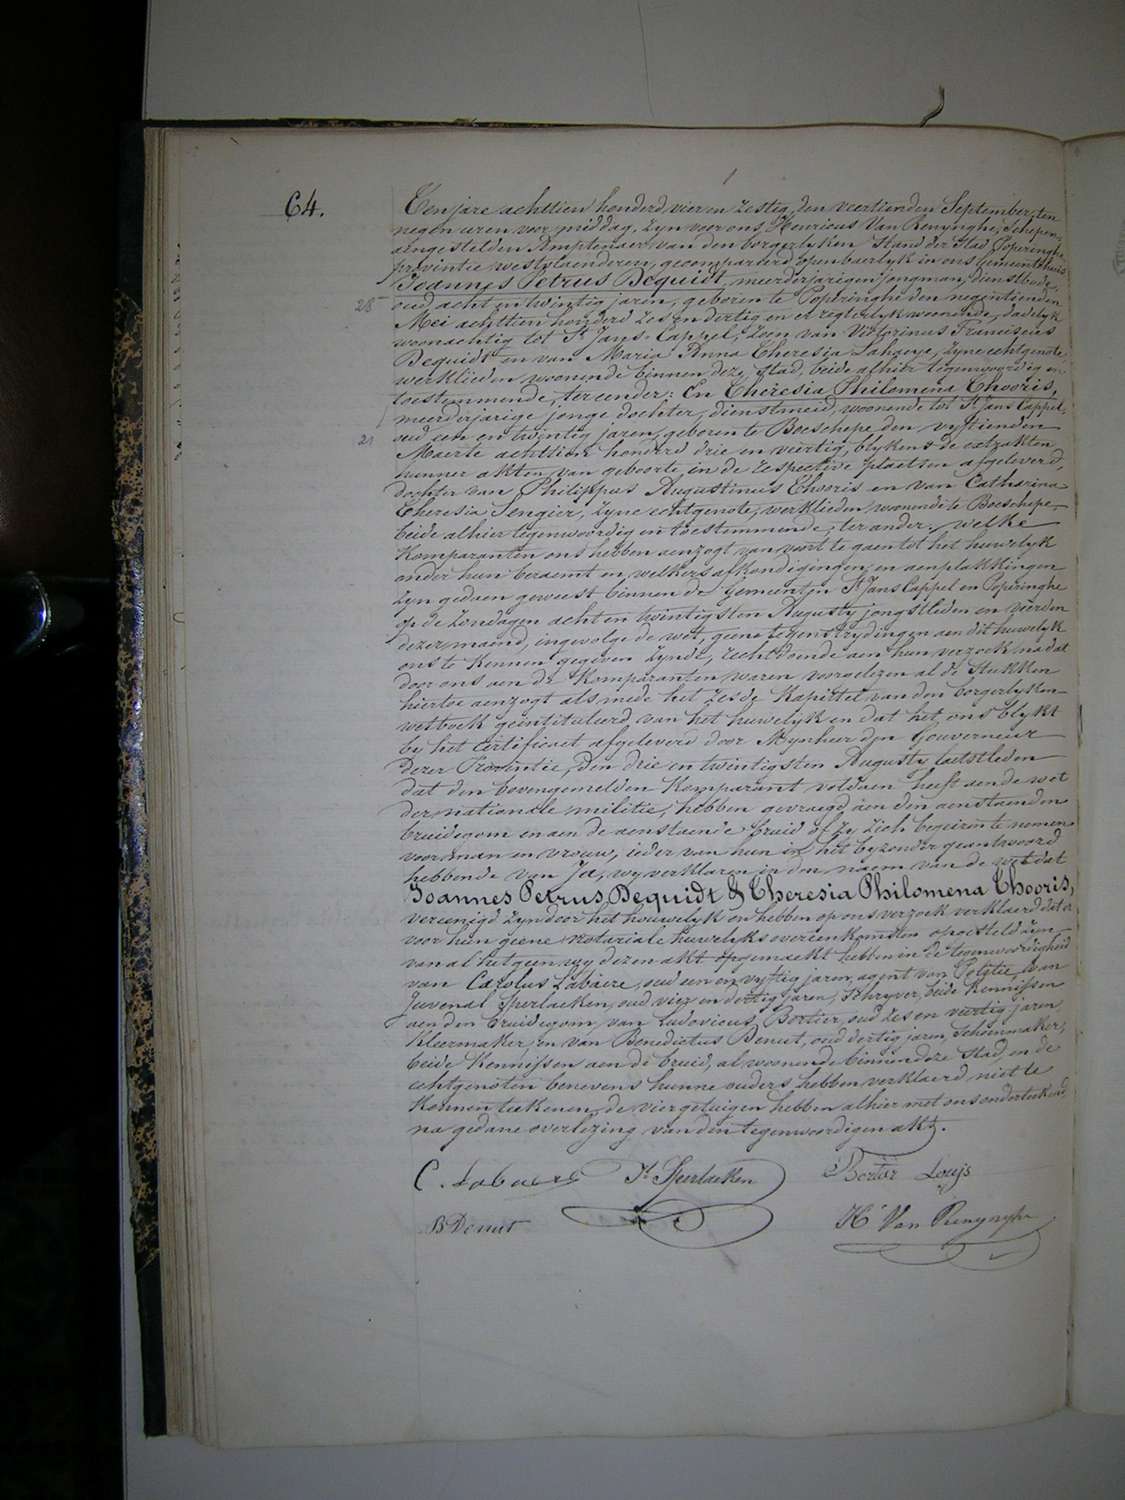 64.
Ten jare achttien honderd vier en zestig, den veertienden September, ten
negen uren voor middag, zyn voor ons Henricus Van Renynghe, Schepen,
aengestelden Amptenaer van den borgerlyken Stand der Stad Poperinghe,
provintie westvlaenderen, gecompareerd openbaerlyk in ons Gemeentehuis
Joannes Petrus Dequidt, meerderjarigen jongman, dienstbode,
28
oud acht en twintig jaren, geboren te Poperinghe den negentienden
Mei achttien honderd zes en dertig en er regterlyk woonende, dadelyk
woonachtig tot St Jans-Cappel, zoon van Victorinus Franciscus
Dequidt en van Maria Anna Theresia Lahaeye, zyne echtgenote,
werklieden woonende binnen deze Stad, beide alhier tegenwoordig en
toestemmende, ter eender; En Theresia Philomena Thooris,
meerderjarige jonge dochter, dienstmeid, woonende tot St Jans Cappel,
21
oud een en twintig jaren, geboren te Boeschepe den vyftienden
Maerte achttien honderd drie en veertig, blykens de extrakten
hunner akten van geboorte in de respective plaetsen afgeleverd,
dochter van Philippus Augustinus Thooris en van Catharina
Theresia Sengier, zyne echtgenote, werklieden woonende te Boeschepe
beide alhier tegenwoordig en toestemmende, ter ander. welke
Komparanten ons hebben aenzogt van voort te gaen tot het huwelyk
onder hun beraemt en welkers afkondigingen en aenplakkingen
zyn gedaen geweest binnen de Gemeenten St Jans Cappel en Poperinghe
op de Zondagen acht en twintigsten Augusty jongstleden en vierden
dezer maend, ingevolge de wet, geene tegenstrydingen aen dit huwelyk
ons te kennen gegeven zynde, rechtdoende aen hun verzoek, na dat
door ons aen de Komparanten waren voorgelezen al de Stukken
hiertoe aenzogt als mede het zesde Kapittel van den borgerlyken
wetboek geintituleerd van het huwelyk en dat het ons blykt
by het certificaet afgeleverd door Mynheer den Gouverneur
dezer Provintie, den drie en twintigsten Augusty laetstleden
dat den bovengemelden Komparant voldaen heeft aen de wet
der nationale militie, hebben gevraegd aen den aenstaenden
bruidegom en aen de aenstaende bruid of zy zich begeiren te nemen
voor man en vrouw, ieder van hun in het byzonder geantwoord
hebbende van Ja, wy verklaren in den naem van de wet dat
Joannes Petrus Dequidt & Theresia Philomena Thooris,
vereenigd zyn door het houwelyk en hebben op ons verzoek verklaerd dat er
voor hun geene notariale huwelyks overeenkomsten opgesteld zyn
van al hetgeen wy dezen akt opgemaekt hebben in de tegenwoordigheid
van Carolus Labaere, oud een en vyftig jaren, agent van Politie, van
Juvenal Sperlaeken, oud vier en dertig jaren, Schryver, beide Kennissen
aen den bruidegom, van Ludovicus Bortier, oud zes en veertig jaren,
Kleermaker, en van Benedictus Denut, oud dertig jaren, Schoenmaker,
beide Kennissen aen de bruid, al woonende binnen deze Stad, en de
echtgenoten benevens hunne ouders hebben verklaerd niet te
konnen teekenen, de vier getuigen hebben alhier met ons onderteekend,
na gedane overlezing van den tegenwoordigen akt.
C. Labaere Jl Sperlaeken Bortier Louis
B Denut H Van Renynghe